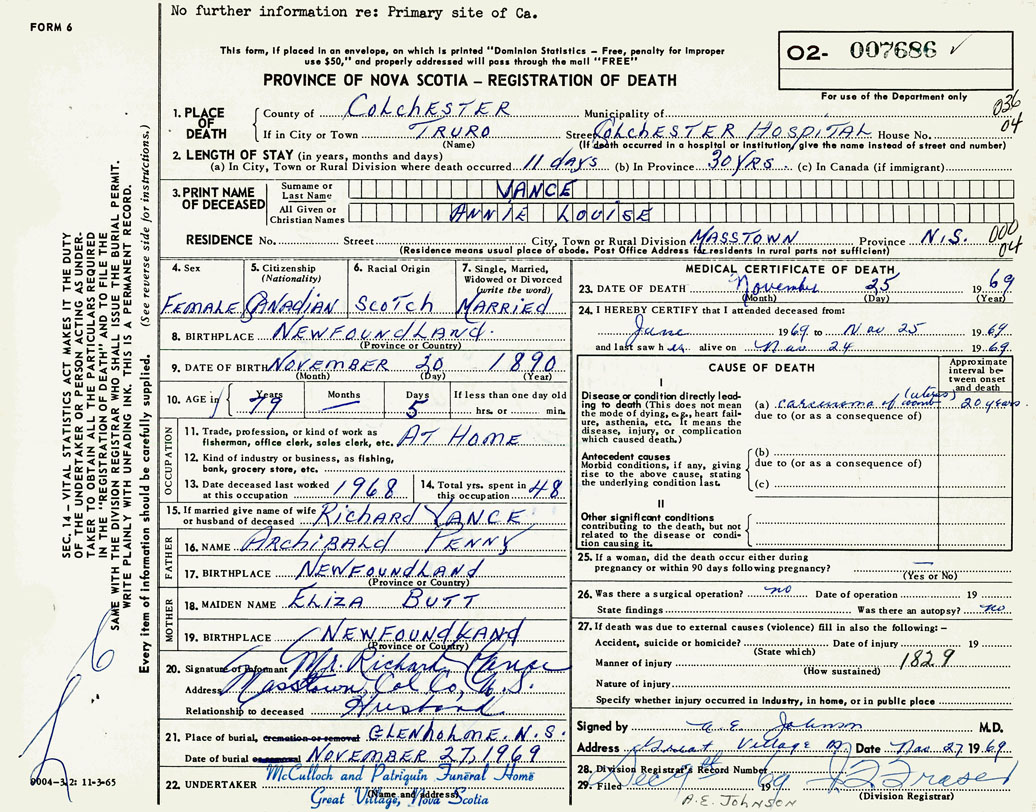 No further information re: Primary site of Ca.
FORM 6
This form, if placed in an envelope, on which is printed "Dominion Statistics – Free, penalty for improper
use $50," and properly addressed will pass through the mail "FREE"
PROVINCE OF NOVA SCOTIA – REGISTRATION OF DEATH
02- 007686 ✓
For use of the Department only
036
04
SEC. 14 – VITAL STATISTICS ACT MAKES IT THE DUTY
OF THE UNDERTAKER OR PERSON ACTING AS UNDER-
TAKER TO OBTAIN ALL THE PARTICULARS REQUIRED
IN THE "REGISTRATION OF DEATH" AND TO FILE THE
SAME WITH THE DIVISION REGISTRAR WHO SHALL ISSUE THE BURIAL PERMIT.
WRITE PLAINLY WITH UNFADING INK. THIS IS A PERMANENT RECORD.
Every item of information should be carefully supplied. (See reverse side for instructions.)
1. PLACE OF DEATH
County of COLCHESTER Municipality of
If in City or Town TRURO Street COLCHESTER HOSPITAL House No.
(Name) (If death occurred in a hospital or institution, give the name instead of street and number)
2. LENGTH OF STAY (in years, months and days)
(a) In City, Town or Rural Division where death occurred 11 days (b) In Province 30 YRS (c) In Canada (if immigrant)
3. PRINT NAME OF DECEASED
Surname or Last Name VANCE
All Given or Christian Names ANNIE LOUISE
RESIDENCE No. Street City, Town or Rural Division MASSTOWN Province N.S.
000
04
(Residence means usual place of abode. Post Office Address for residents in rural parts not sufficient)
4. Sex FEMALE
5. Citizenship (Nationality) CANADIAN
6. Racial Origin SCOTCH
7. Single, Married, Widowed or Divorced (write the word) MARRIED
8. BIRTHPLACE NEWFOUNDLAND.
(Province or Country)
9. DATE OF BIRTH NOVEMBER 20 1890
(Month) (Day) (Year)
10. AGE in Years 79 Months — Days 5 If less than one day old
hrs. or min.
OCCUPATION
11. Trade, profession, or kind of work as fisherman, office clerk, sales clerk, etc. AT HOME
12. Kind of industry or business, as fishing, bank, grocery store, etc.
13. Date deceased last worked at this occupation 1968
14. Total yrs. spent in this occupation 48
15. If married give name of wife or husband of deceased RICHARD VANCE
FATHER
16. NAME ARCHIBALD PENNY
17. BIRTHPLACE NEWFOUNDLAND
(Province or Country)
MOTHER
18. MAIDEN NAME ELIZA BUTT
19. BIRTHPLACE NEWFOUNDLAND
(Province or Country)
20. Signature of Informant Mr. Richard Vance
Address Masstown, Col Co, N.S.
Relationship to deceased Husband
21. Place of burial, cremation or removal GLENHOLME, N.S.
Date of burial NOVEMBER 27, 1969
22. UNDERTAKER McCulloch and Patriquin Funeral Home
(Name and address)
Great Village, Nova Scotia
0004-3.2: 11-3-65
MEDICAL CERTIFICATE OF DEATH
23. DATE OF DEATH November 25 1969
(Month) (Day) (Year)
24. I HEREBY CERTIFY that I attended deceased from:
June 1969 to Nov 25 1969
and last saw her alive on Nov 24 1969
CAUSE OF DEATH
Approximate interval between onset and death
I
Disease or condition directly leading to death (This does not mean the mode of dying, e.g., heart failure, asthenia, etc. It means the disease, injury, or complication which caused death.)
(uterus)
(a) carcinoma of womb 20 years
due to (or as a consequence of)
Antecedent causes
Morbid conditions, if any, giving rise to the above cause, stating the underlying condition last.
(b)
due to (or as a consequence of)
(c)
II
Other significant conditions contributing to the death, but not related to the disease or condition causing it.
25. If a woman, did the death occur either during
pregnancy or within 90 days following pregnancy? —
(Yes or No)
26. Was there a surgical operation? no Date of operation 19
State findings Was there an autopsy? no
27. If death was due to external causes (violence) fill in also the following:–
Accident, suicide or homicide? Date of injury 19
(State which)
Manner of injury 1829
(How sustained)
Nature of injury
Specify whether injury occurred in industry, in home, or in public place
Signed by A. E. Johnson M.D.
Address Great Village Date Nov. 27 1969
28. Division Registrar's Record Number
29. Filed Dec 9th 1969 Fraser
(Division Registrar)
A.E. JOHNSON